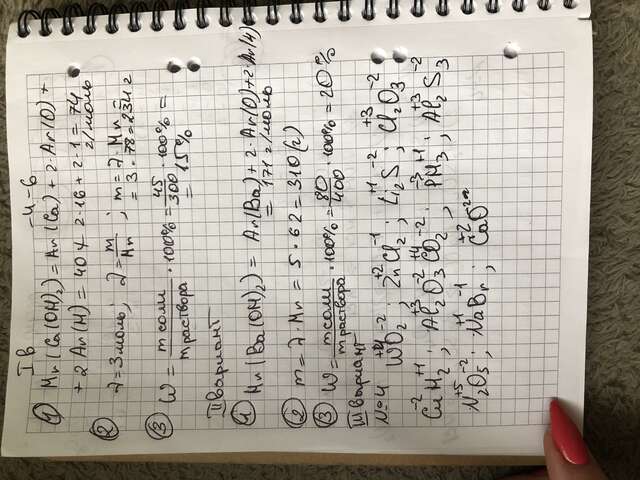 I в -4-6
① Mr(Ca(OH)₂) = Ar(Ca) + 2·Ar(O) +
+ 2Ar(H) = 40 + 2·16 + 2·1 = 74 г/моль
② ν = 3 моль; ν = m/Mr; m = ν·Mr =
= 3·78 = 234 г
③ W = m соли / m раствора · 100% = 45/300 · 100% =
= 15%
II вариант
① Mr(Ba(OH)₂) = Ar(Ba) + 2·Ar(O) + 2·Ar(H)
= 171 г/моль
② m = ν·Mr = 5·62 = 310 (г)
③ W = m соли / m раствора · 100% = 80/400 · 100% = 20%
III вариант
N=4 W⁺⁴O₂⁻²; Zn⁺²Cl₂⁻¹; Li₂⁺¹S⁻²; Cl₂⁺³O₃⁻²
H₂; Al₂⁺³O₃⁻²; O₂⁻²; P⁻³H₃⁺¹; Al₂⁺³S₃⁻²
N₂⁺⁵O₅⁻²; Na⁺¹Br⁻¹; Ca⁺²O⁻²